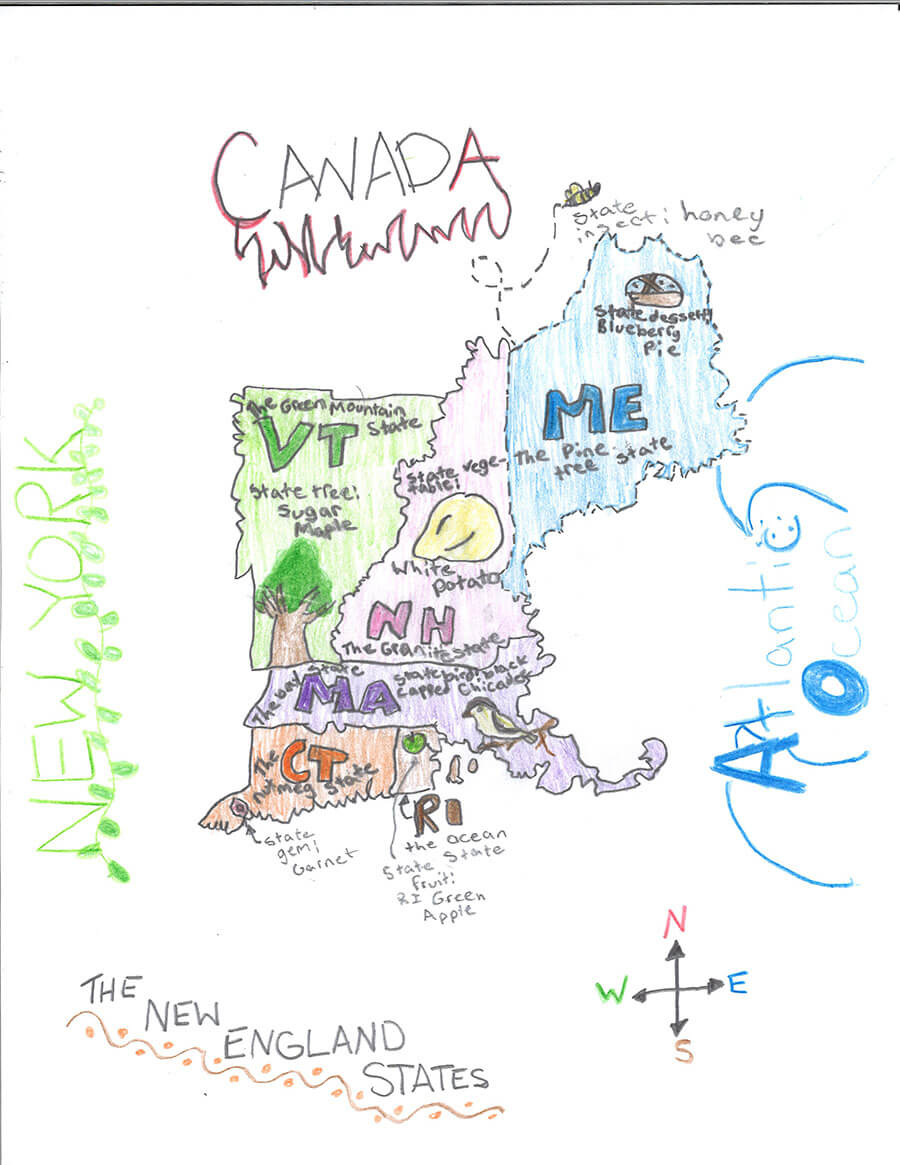 CANADA
State
insect: honey
bee
State dessert:
Blueberry
Pie
ME
The Pine
tree State
The Green Mountain
State
VT
State tree:
Sugar
Maple
State vege-
table:
White
Potato
NH
The Granite State
The bay State
MA
state bird: black
capped Chicadee
The
CT
nutmeg State
State
gem:
Garnet
RI
the ocean
State State
fruit:
RI Green
Apple
NEW YORK
Atlantic
Ocean
N
W
E
S
THE
NEW
ENGLAND
STATES